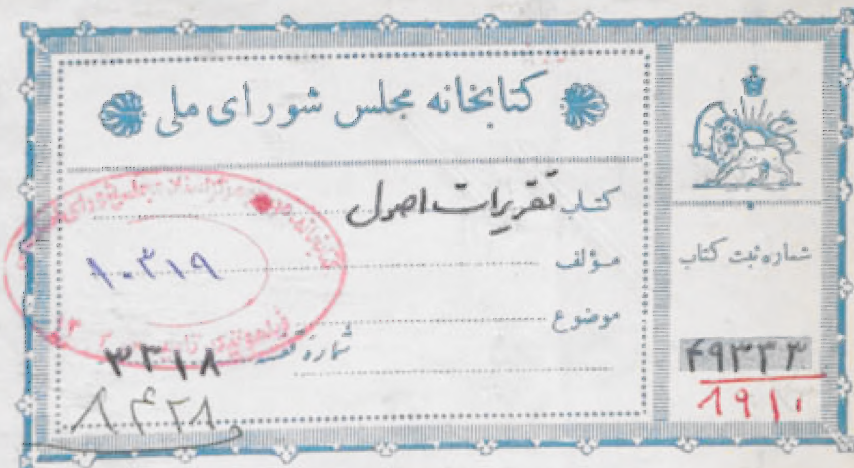 کتابخانه مجلس شورای ملی
کتاب تقریرات اصول
مؤلف
موضوع
شماره قفسه ۳۳۱۸
۸۴۲۸
۱۰۳۱۹
شماره ثبت کتاب
۴۹۳۳۳
۸۹۱۰